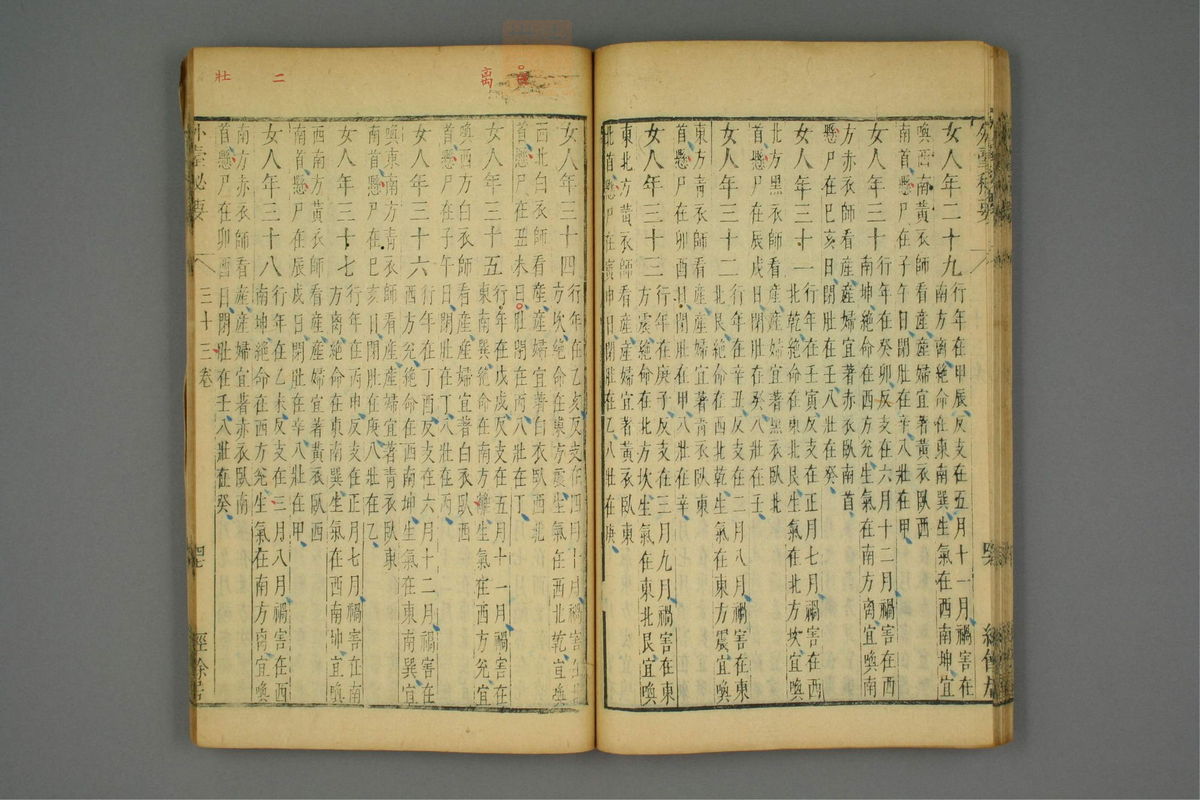 外臺秘要
女人年二十九
行年在甲辰反支在五月十一月禍害在
南方離絕命在東南巽生氣在西南坤宜
喚西南黃衣師看產產婦宜著黃衣臥西
南首懸尸在子午日閉肚在辛八壯在甲
女人年三十
行年在癸卯反支在六月十二月禍害在西
南坤絕命在西方兌生氣在南方离宜喚南
方赤衣師看產產婦宜著赤衣臥南首
懸尸在巳亥日閉肚在壬八壯在癸
女人年三十一
行年在壬寅反支在正月七月禍害在西
北乾絕命在東北艮生氣在北方坎宜喚
北方黑衣師看產產婦宜著黑衣臥北
首懸尸在辰戌日閉肚在癸八壯在壬
女人年三十二
行年在辛丑反支在二月八月禍害在東
北艮絕命在西北乾生氣在東方震宜喚
東方青衣師看產產婦宜著青衣臥東
首懸尸在卯酉日閉肚在甲八壯在辛
女人年三十三
行年在庚子反支在三月九月禍害在東
方震絕命在北方坎生氣在東北艮宜喚
東北方黃衣師看產產婦宜著黃衣臥東
北首懸尸在寅申日閉肚在乙八壯在庚
离
二
壯
女人年三十四
行年在乙亥反支在四月十月禍害在北
方坎絕命在東方震生氣在西北乾宜喚
西北白衣師看產產婦宜著白衣臥西北
首懸尸在丑未日肚閉在丙八壯在丁
女人年三十五
行年在戊戌反支在五月十一月禍害在
東南巽絕命在南方離生氣在西方兌宜
喚西方白衣師看產產婦宜著白衣臥西
首懸尸在子午日閉肚在丁八壯在丙
女人年三十六
行年在丁酉反支在六月十二月禍害在
西方兌絕命在西南坤生氣在東南巽宜
喚東南方青衣師看產產婦宜著青衣臥東
南首懸尸在巳亥日閉肚在庚八壯在乙
女人年三十七
行年在丙申反支在正月七月禍害在南
方离絕命在東南巽生氣在西南坤宜喚
西南方黃衣師看產產婦宜著黃衣臥西
南首懸尸在辰戌日閉肚在辛八壯在甲
女人年三十八
行年在乙未反支在三月八月禍害在西
南坤絕命在西方兌生氣在南方离宜喚
南方赤衣師看產產婦宜著赤衣臥南
首懸尸在卯酉日閉肚在壬八壯在癸
外臺秘要
三十三卷
經餘居